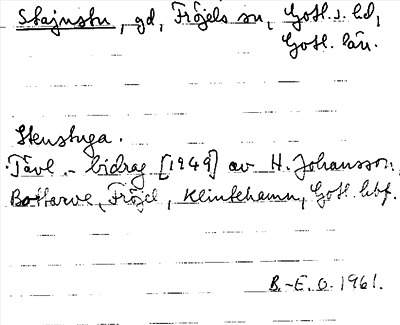 Stajnstu, gd, Fröjels sn, Gotl. s. hd,
Gotl. län.
Stenstuga.
Tävl.-bidrag [1949] av H. Johansson,
Bottarve, Fröjel, Klintehamn, Gotl. lbf.
B.-E. O. 1961.